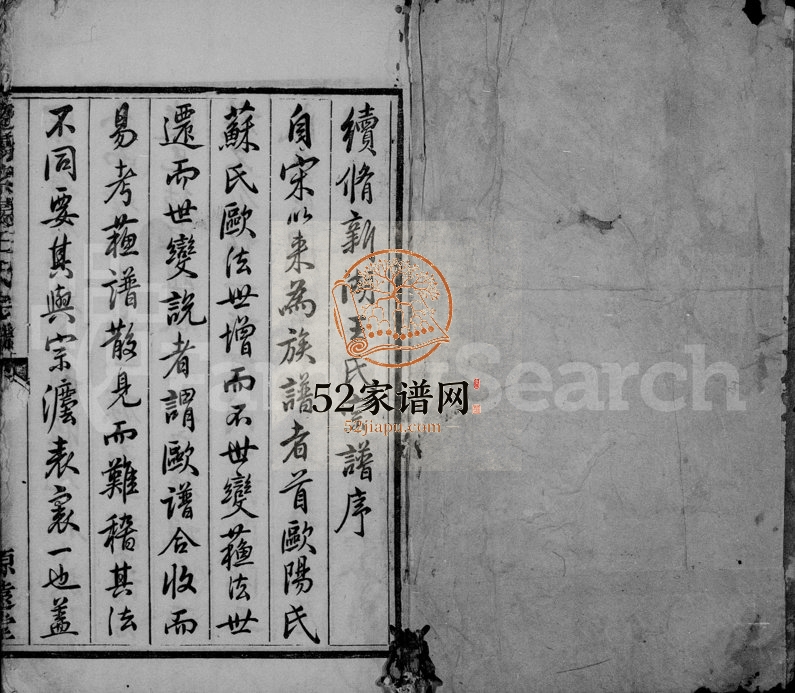 續脩新湖王氏宗譜序
自宋以来為族譜者首歐陽氏
蘇氏歐法世增而不世變蘓法世
遷而世變説者謂歐譜合收而
易考蘓譜散見而難稽其法
不同要其與宗灋表裏一也蓋
源遠堂
FamilySearch
52家谱网
52jiapu.com